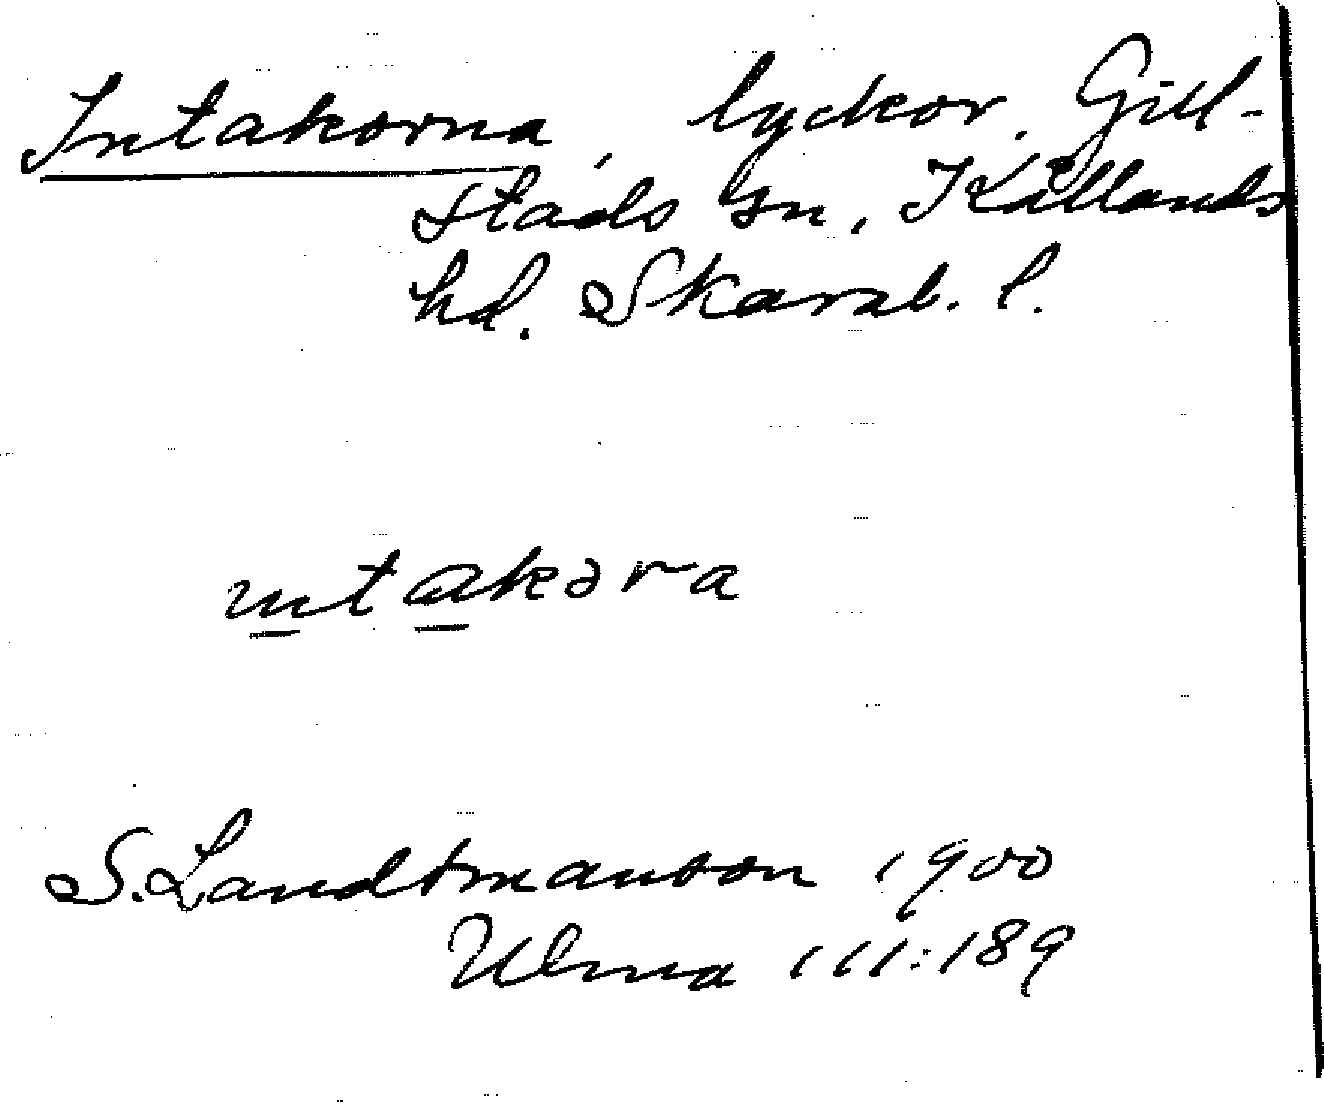 Intakorna, lyckor. Gill-
stads sn, Kållands
hd. Skarab. l.
intakəra
S. Landtmanson 1900
Ulma 111:189